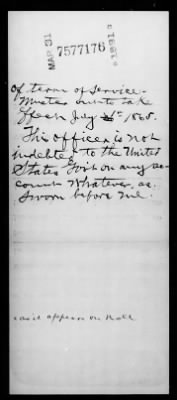 MAR 31
7577176
1891
of term of service.
Muster out to take
effect July 6th 1865.
This officer is not
indebted to the United
States Gov't on any ac-
count whatever, as
sworn before me.
appears on Roll